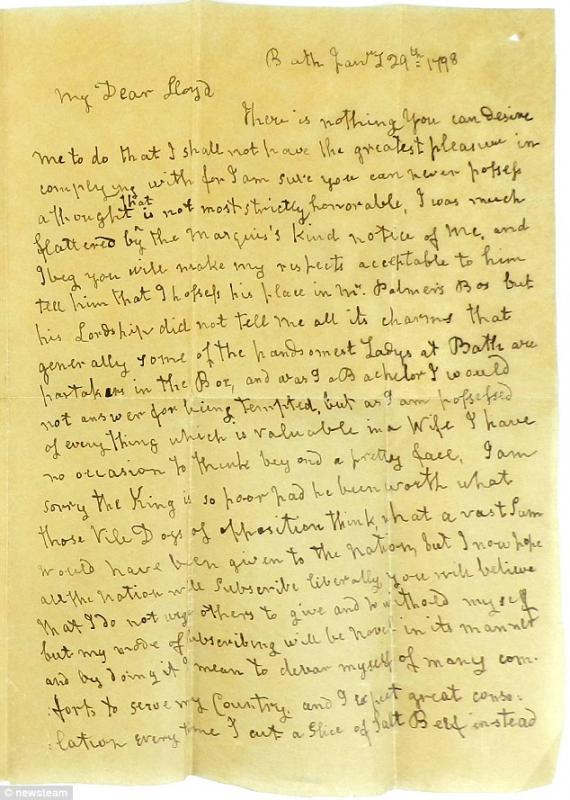 Bath Janry 29th 1798
My Dear Lloyd
There is nothing you can desire
me to do that I shall not have the greatest pleasure in
complying with for I am sure you can never possess
a thought that is not most strictly honorable, I was much
flattered by the Marquis's kind notice of Me, and
I beg you will make my respects acceptable to him
tell him that I possess his place in Mr. Palmer's Box but
his Lordship did not tell me all its charms that
generally some of the handsomest Ladys at Bath are
partakers in the Box, and was I a Bachelor I would
not answer for being tempted, but as I am possessed
of every thing which is valuable in a Wife I have
no occasion to think beyond a pretty face, I am
sorry the King is so poor had he been worth what
those Vile Dogs of opposition think, what a vast Sum
would have been given to the nation, but I now hope
all the Nation will Subscribe liberally, you will believe
that I do not urge others to give and to withold myself
but my mode of subscribing will be novel in its manner
and by doing it I mean to debar myself of many com-
:forts to serve my Country, and I expect great conso:
:lation every time I cut a Slice of Salt Beef instead
© newsteam